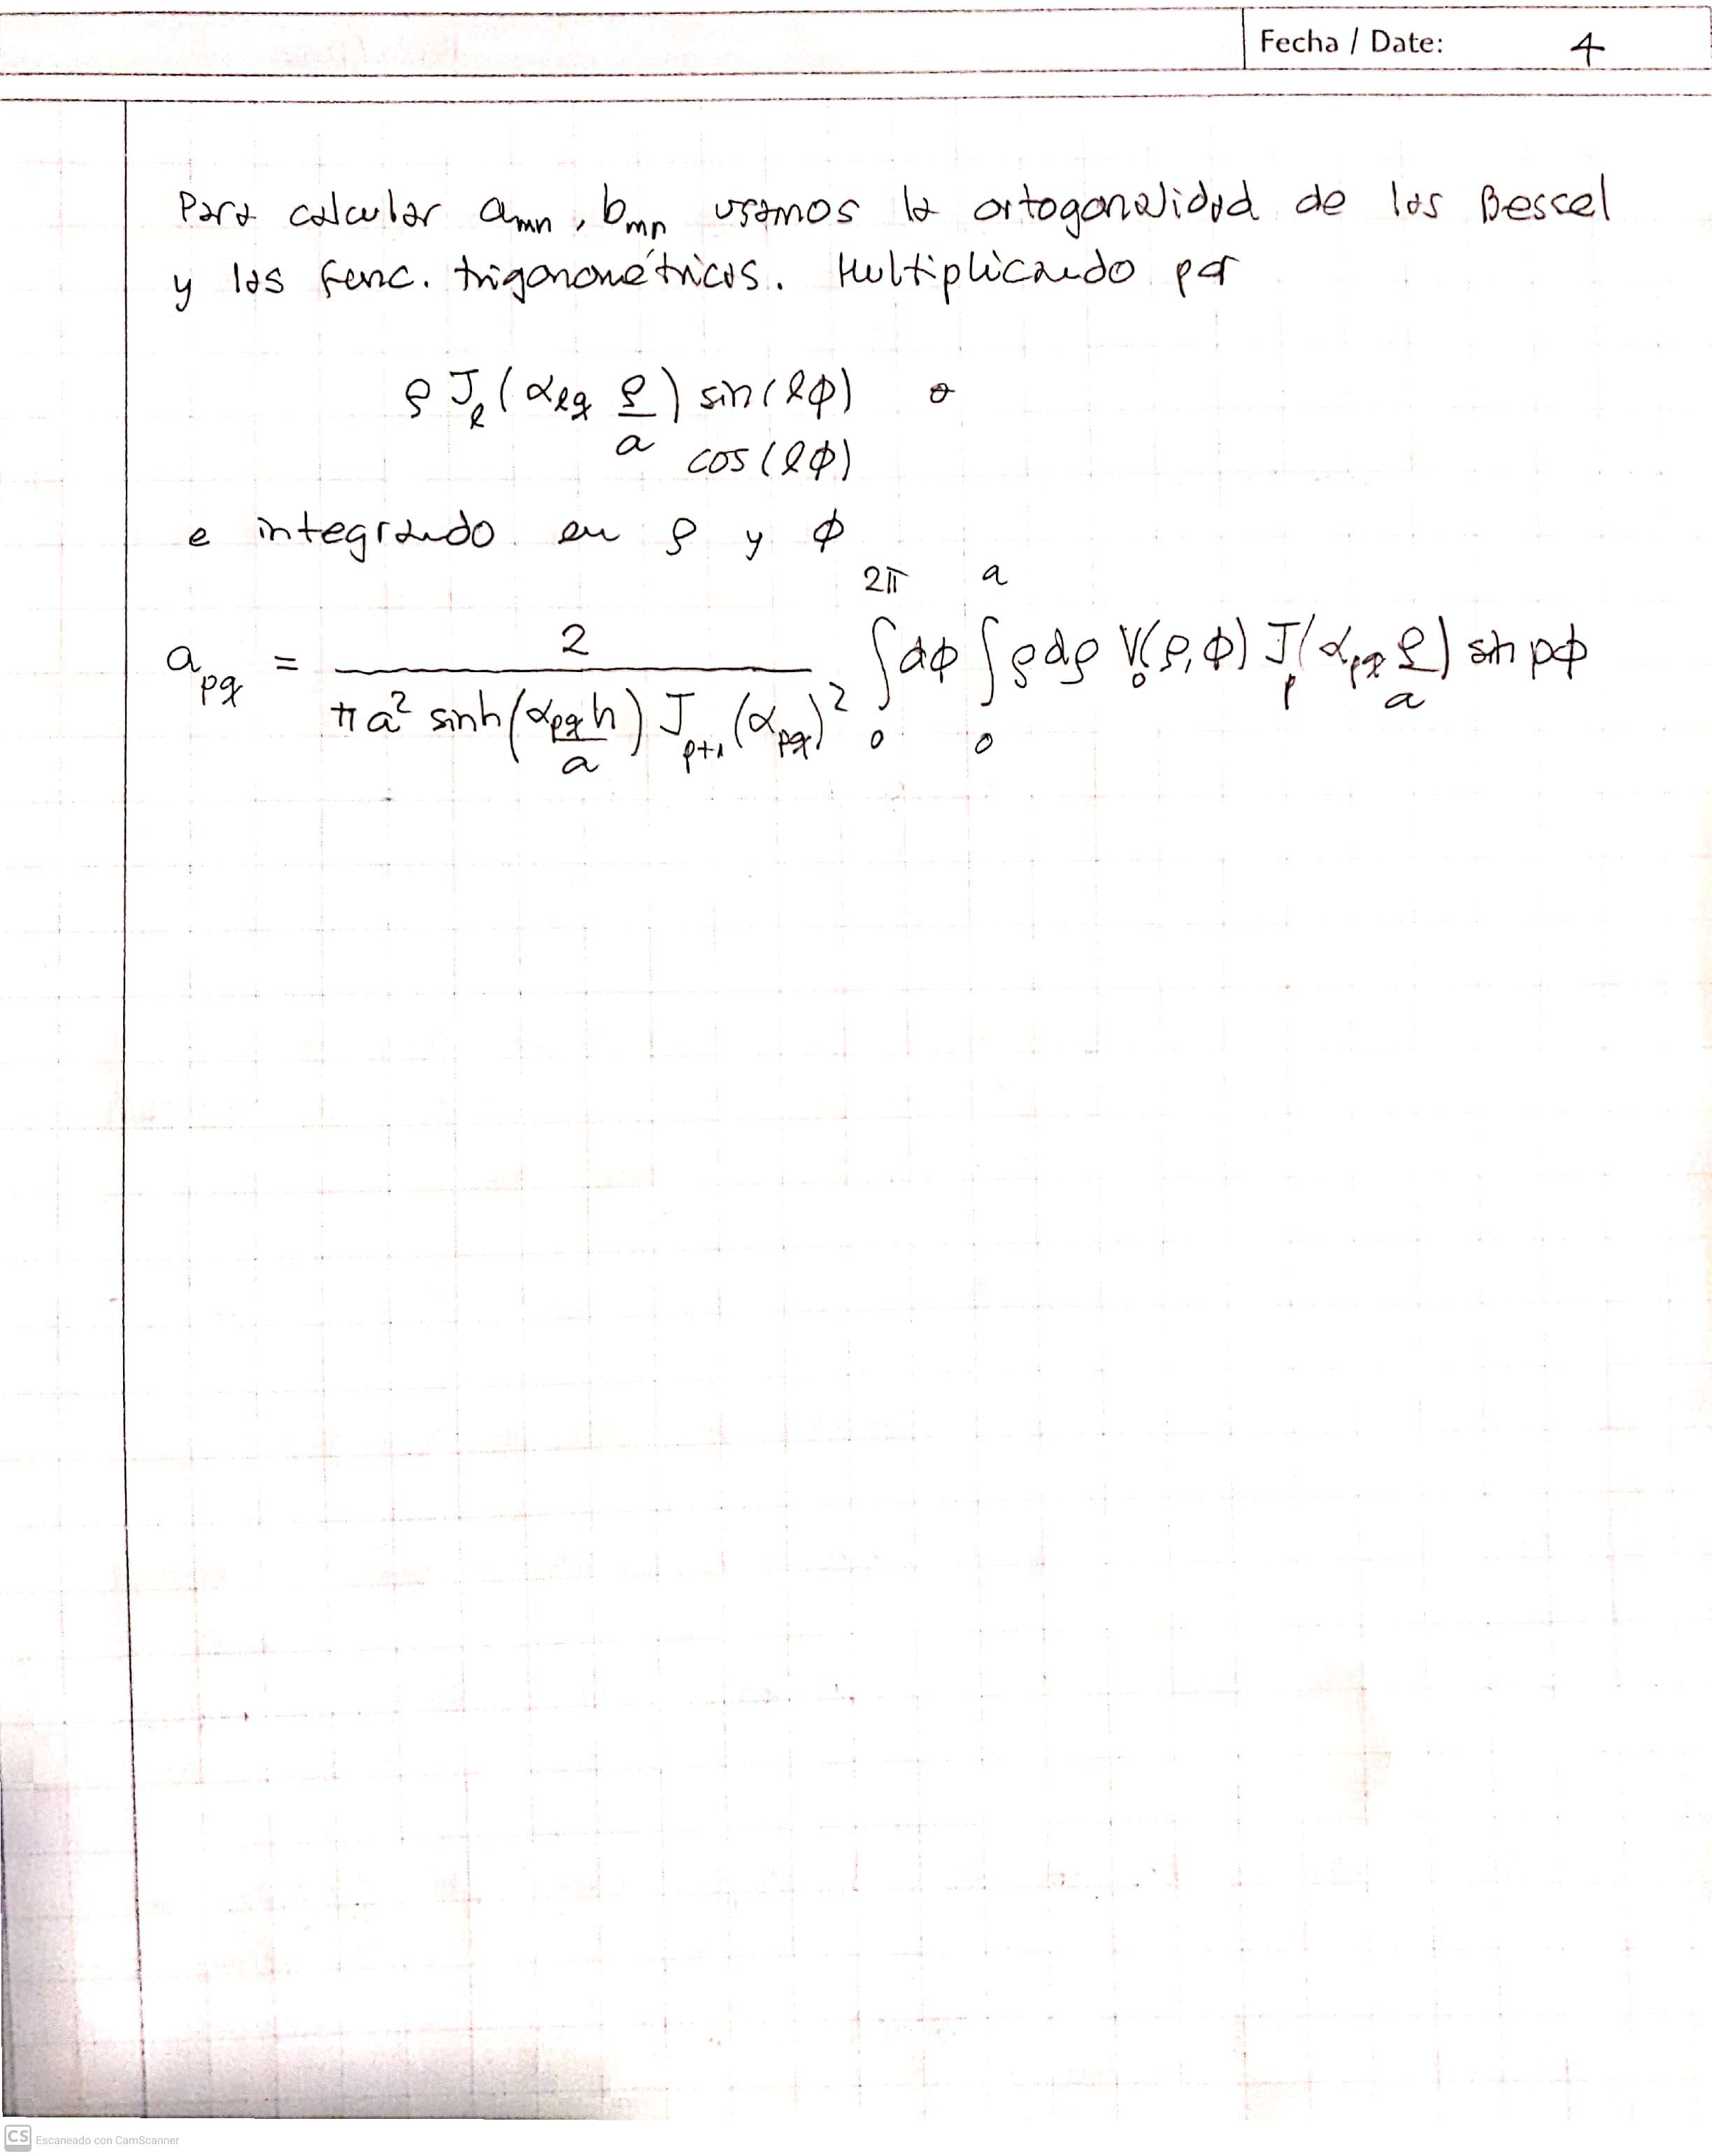 Fecha / Date: 4
Para calcular aₘₙ, bₘₙ usamos la ortogonalidad de las Bessel
y las func. trigonométricas. Multiplicando por
ρ J_ℓ(α_ℓq ρ/a) sin(ℓφ) o
cos(ℓφ)
e integrando en ρ y φ
a_pq = 2/(π a² sinh(α_pq h/a) J_p+1(α_pq)²) ∫₀^2π dφ ∫₀^a ρdρ V₀(ρ,φ) J_p(α_pq ρ/a) sin pφ
CS Escaneado con CamScanner